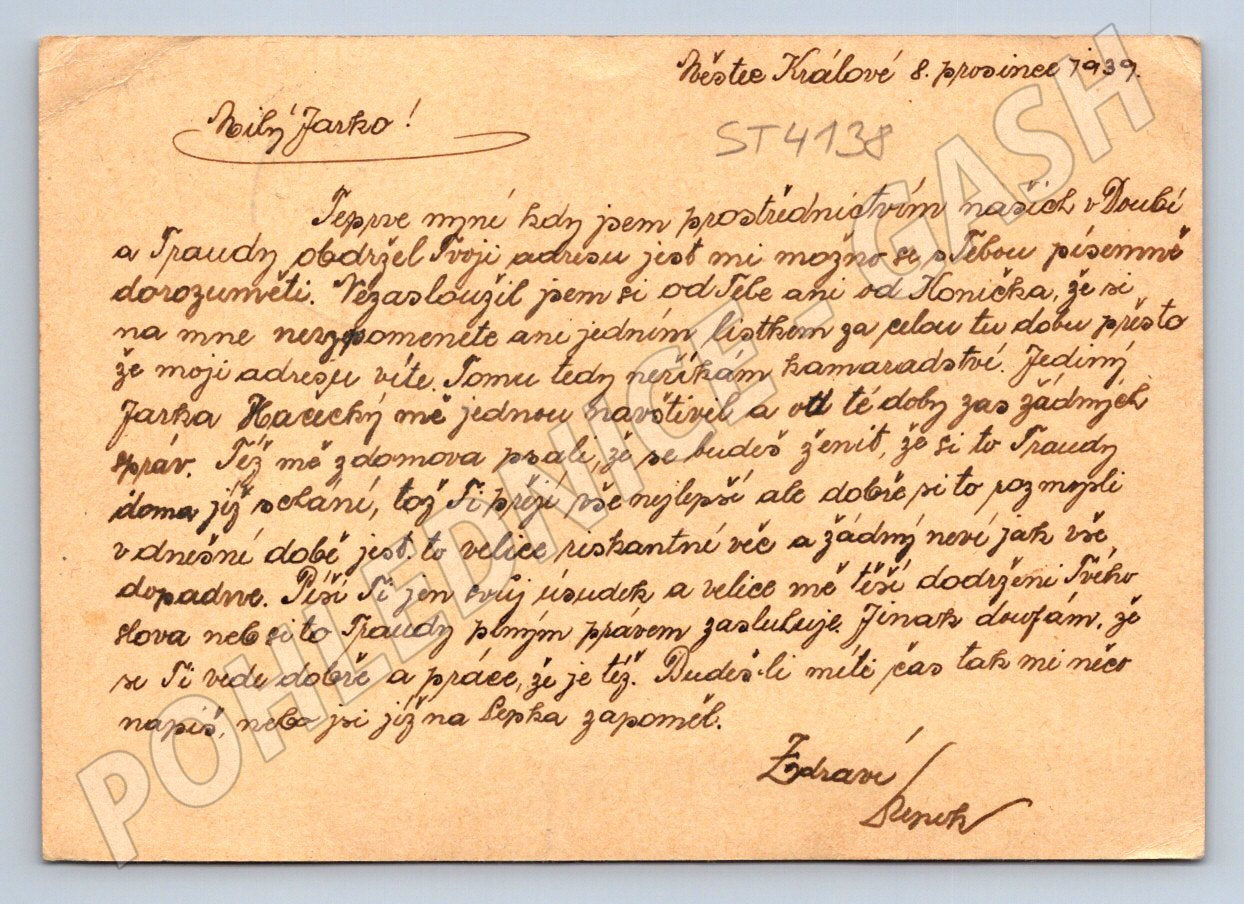 Městec Králové 8. prosinec 1939.
Milý Jarko!
ST4138
Teprve nyní kdy jsem prostřednictvím našich v Doubí
a Traudy obdržel Tvoji adresu jest mi možno se s Tebou písemně
dorozuměti. Nezasloužil jsem si od Tebe ani od Koníčka, že si
na mne nevzpomenete ani jedním lístkem za celou tu dobu přesto
že moji adresu víte. Tomu tedy neříkám kamaradství. Jediný
Jarka mě jednou navštívil a od té doby zas žádných
zpráv. Též mě z domova psali, že se budeš ženit, že si to Traudy
doma již schání, tož Ti přeji vše nejlepší ale dobře si to rozmysli
v dnešní době jest to velice riskantní věc a žádný neví jak vše
dopadne. Píši Ti jen svůj úsudek a velice mě těší dodržení Tvého
slova neb si to Traudy plným právem zasluhuje. Jinak doufám, že
se Ti vede dobře a práce, že je též. Budeš-li míti čas tak mi něco
napiš, nebo jsi již na Pepka zapoměl.
Zdraví
POHLEDNICE - GASH